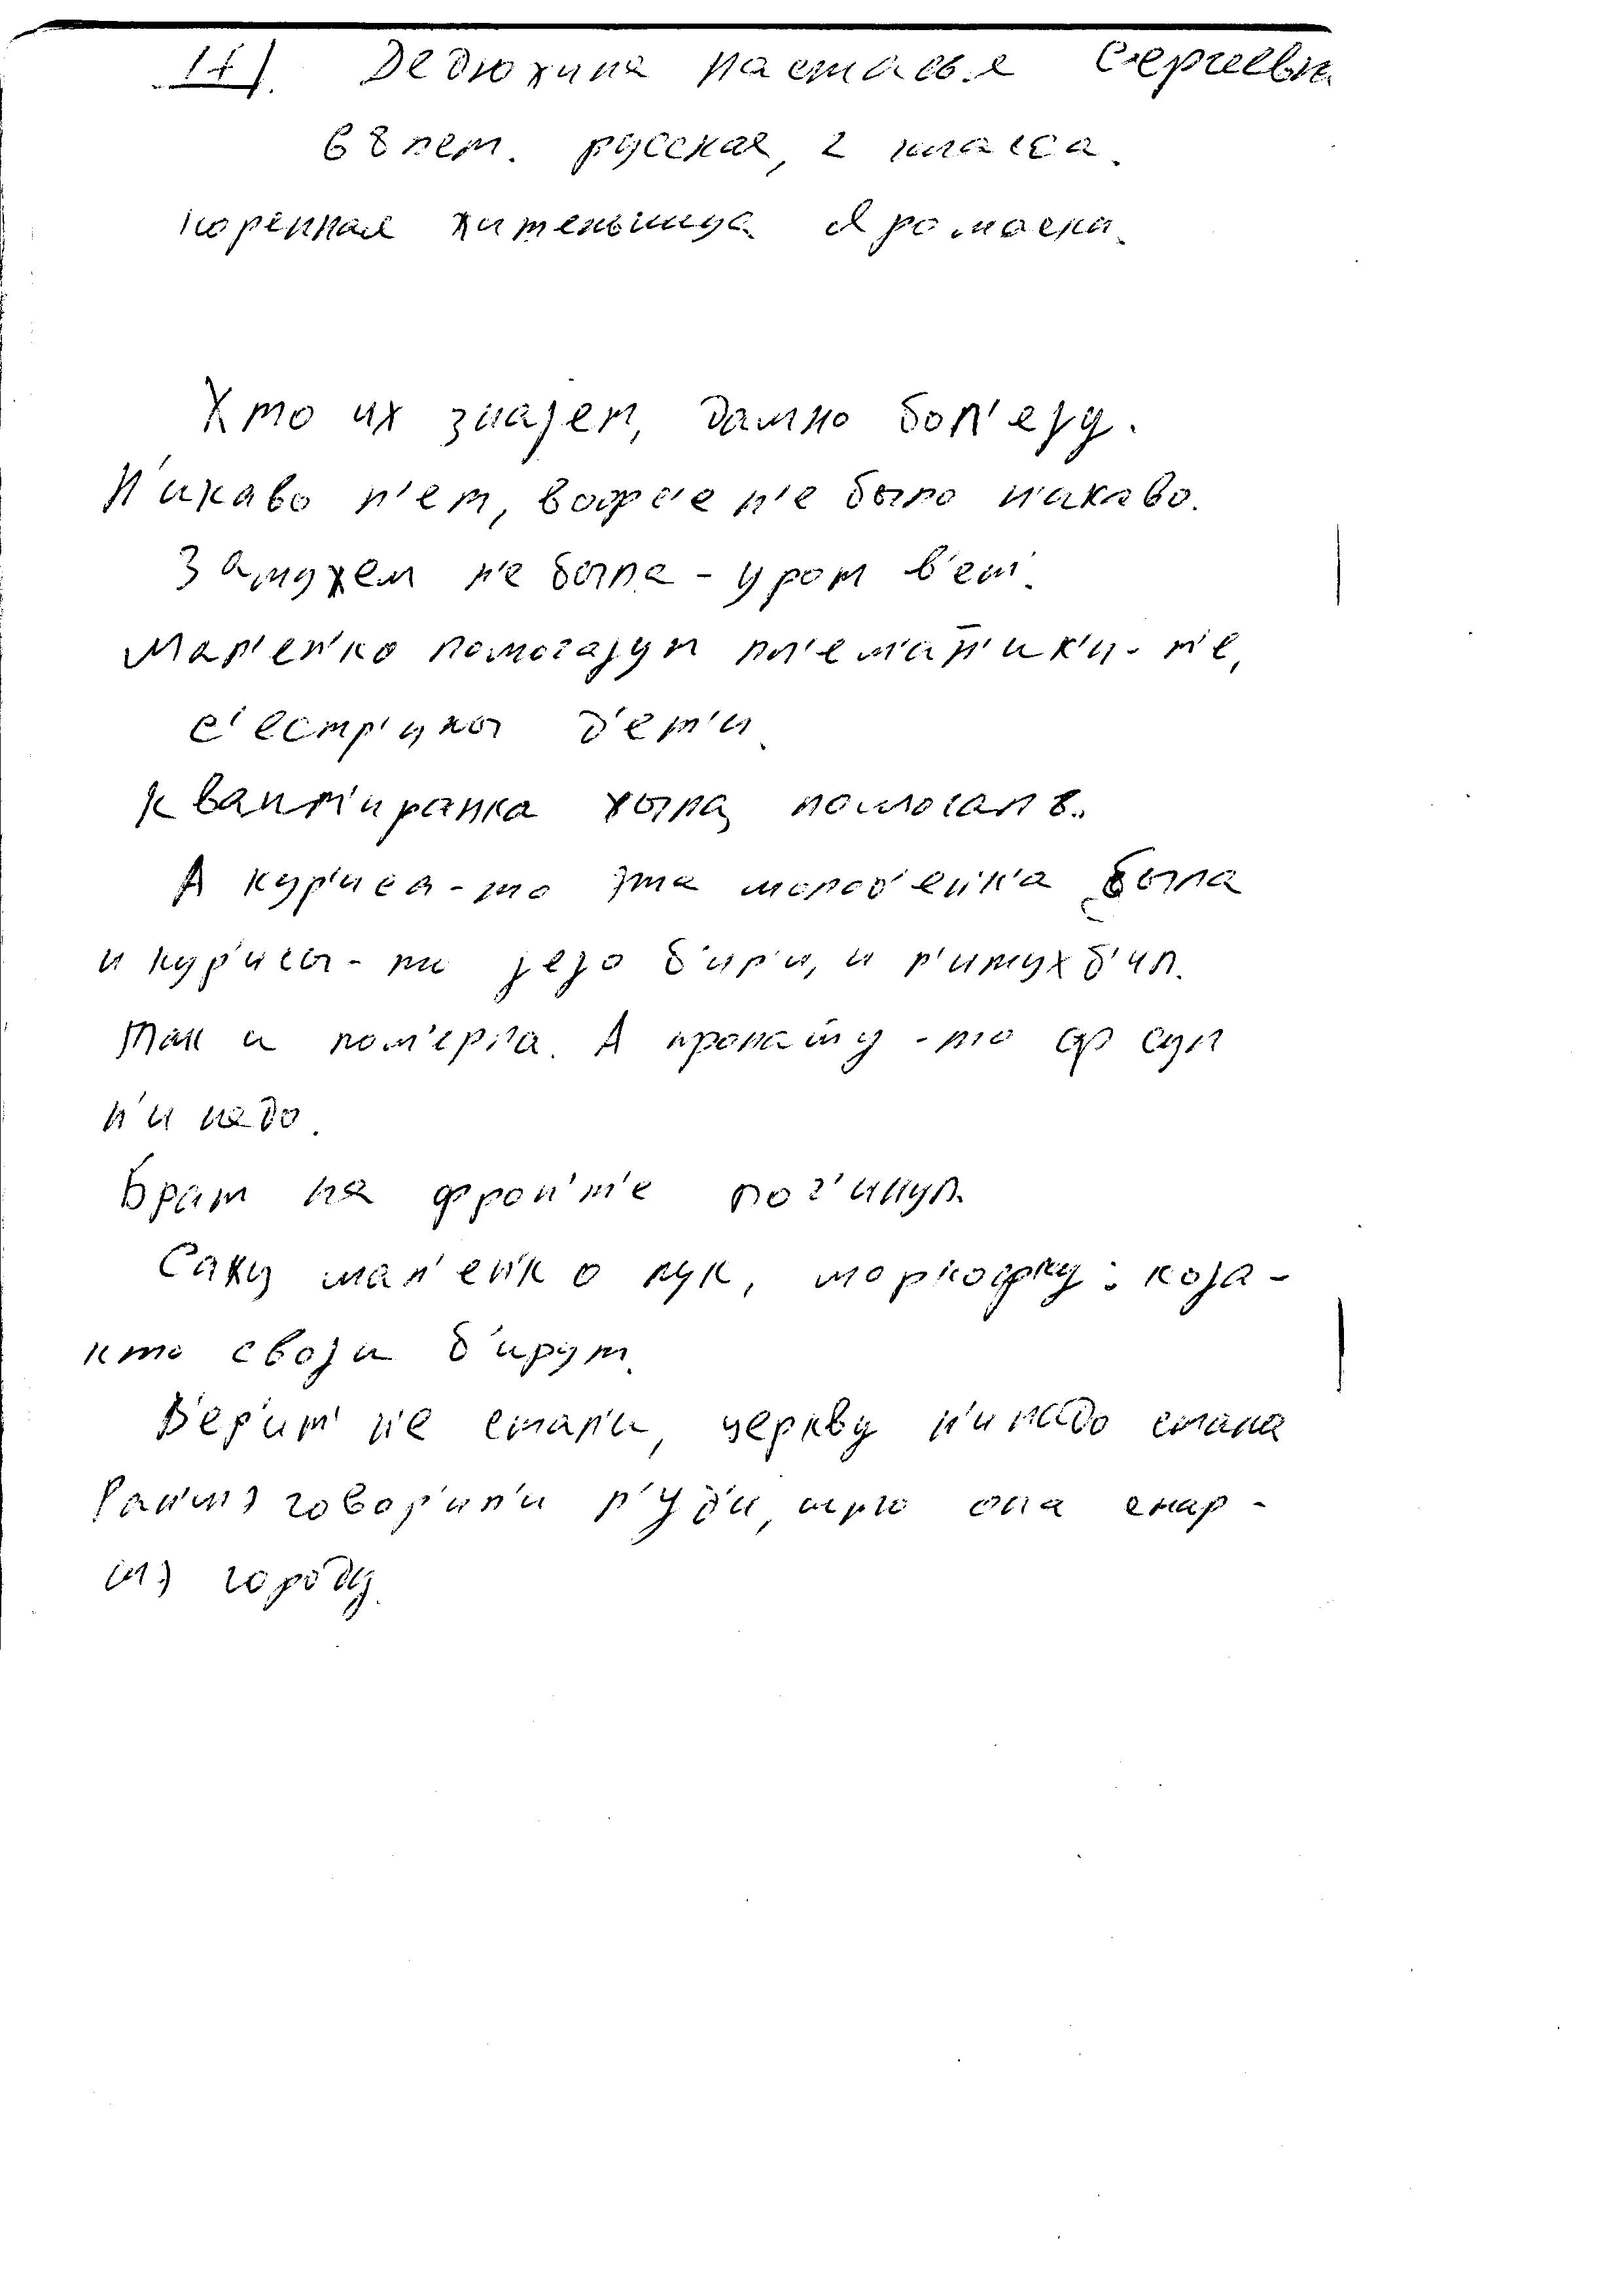 17).   Дедюхина Настасья Сергеевна
68 лет. русская, 2 класса.
коренная жительница Яромаски.
Хто их знајет, дамно бол'еју.
Н'икаво н'ет, вофс'е н'е было н'икаво.
Замужем н'е была - урот в'ет'.
Мал'ен'ко помогајут пл'ем'ан̄'ик'и - т'е,
с'естр'ины д'ет'и.
Квант'иранка жыла, помогала.
А кур'иса-то эта молод'ен'к'а была
и кур'исы-ти јејо б'ил'и, и п'итух б'ил.
Так и пом'ерла. А кропат̄у-то ф суп
н'и надо.
Брат на фрон'т'е пог'инул.
Сажу мал'ен'ко лук, моркофку: која-
кто своји б'ерут.
В'ер'ит' н'е стал'и, церкву н'и надо стала
Ран'шэ говор'ил'и л'уд'и, што она снар-
шэ городу.